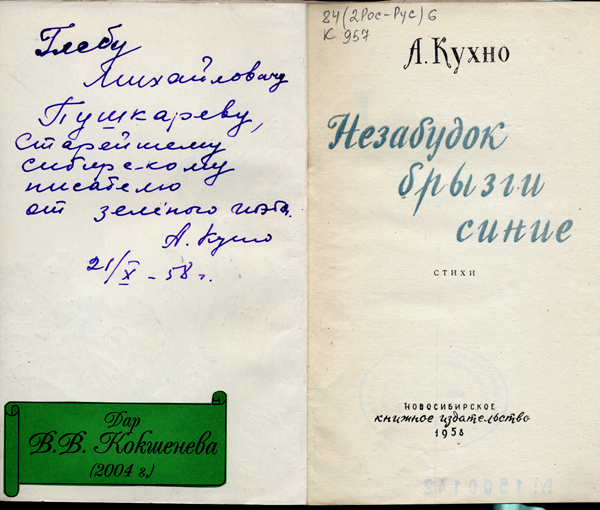 Глебу
Михайловичу
Пушкареву,
старейшему
сибирскому
писателю
от зелёного поэта.
А. Кухно
21/X – 58 г.
Дар
В.В. Кокшенева
(2004 г.)
84(2Рос-Рус)6
К 957
А. Кухно
Незабудок
брызги
синие
СТИХИ
НОВОСИБИРСКОЕ
книжное издательство
1958
№ 1500142